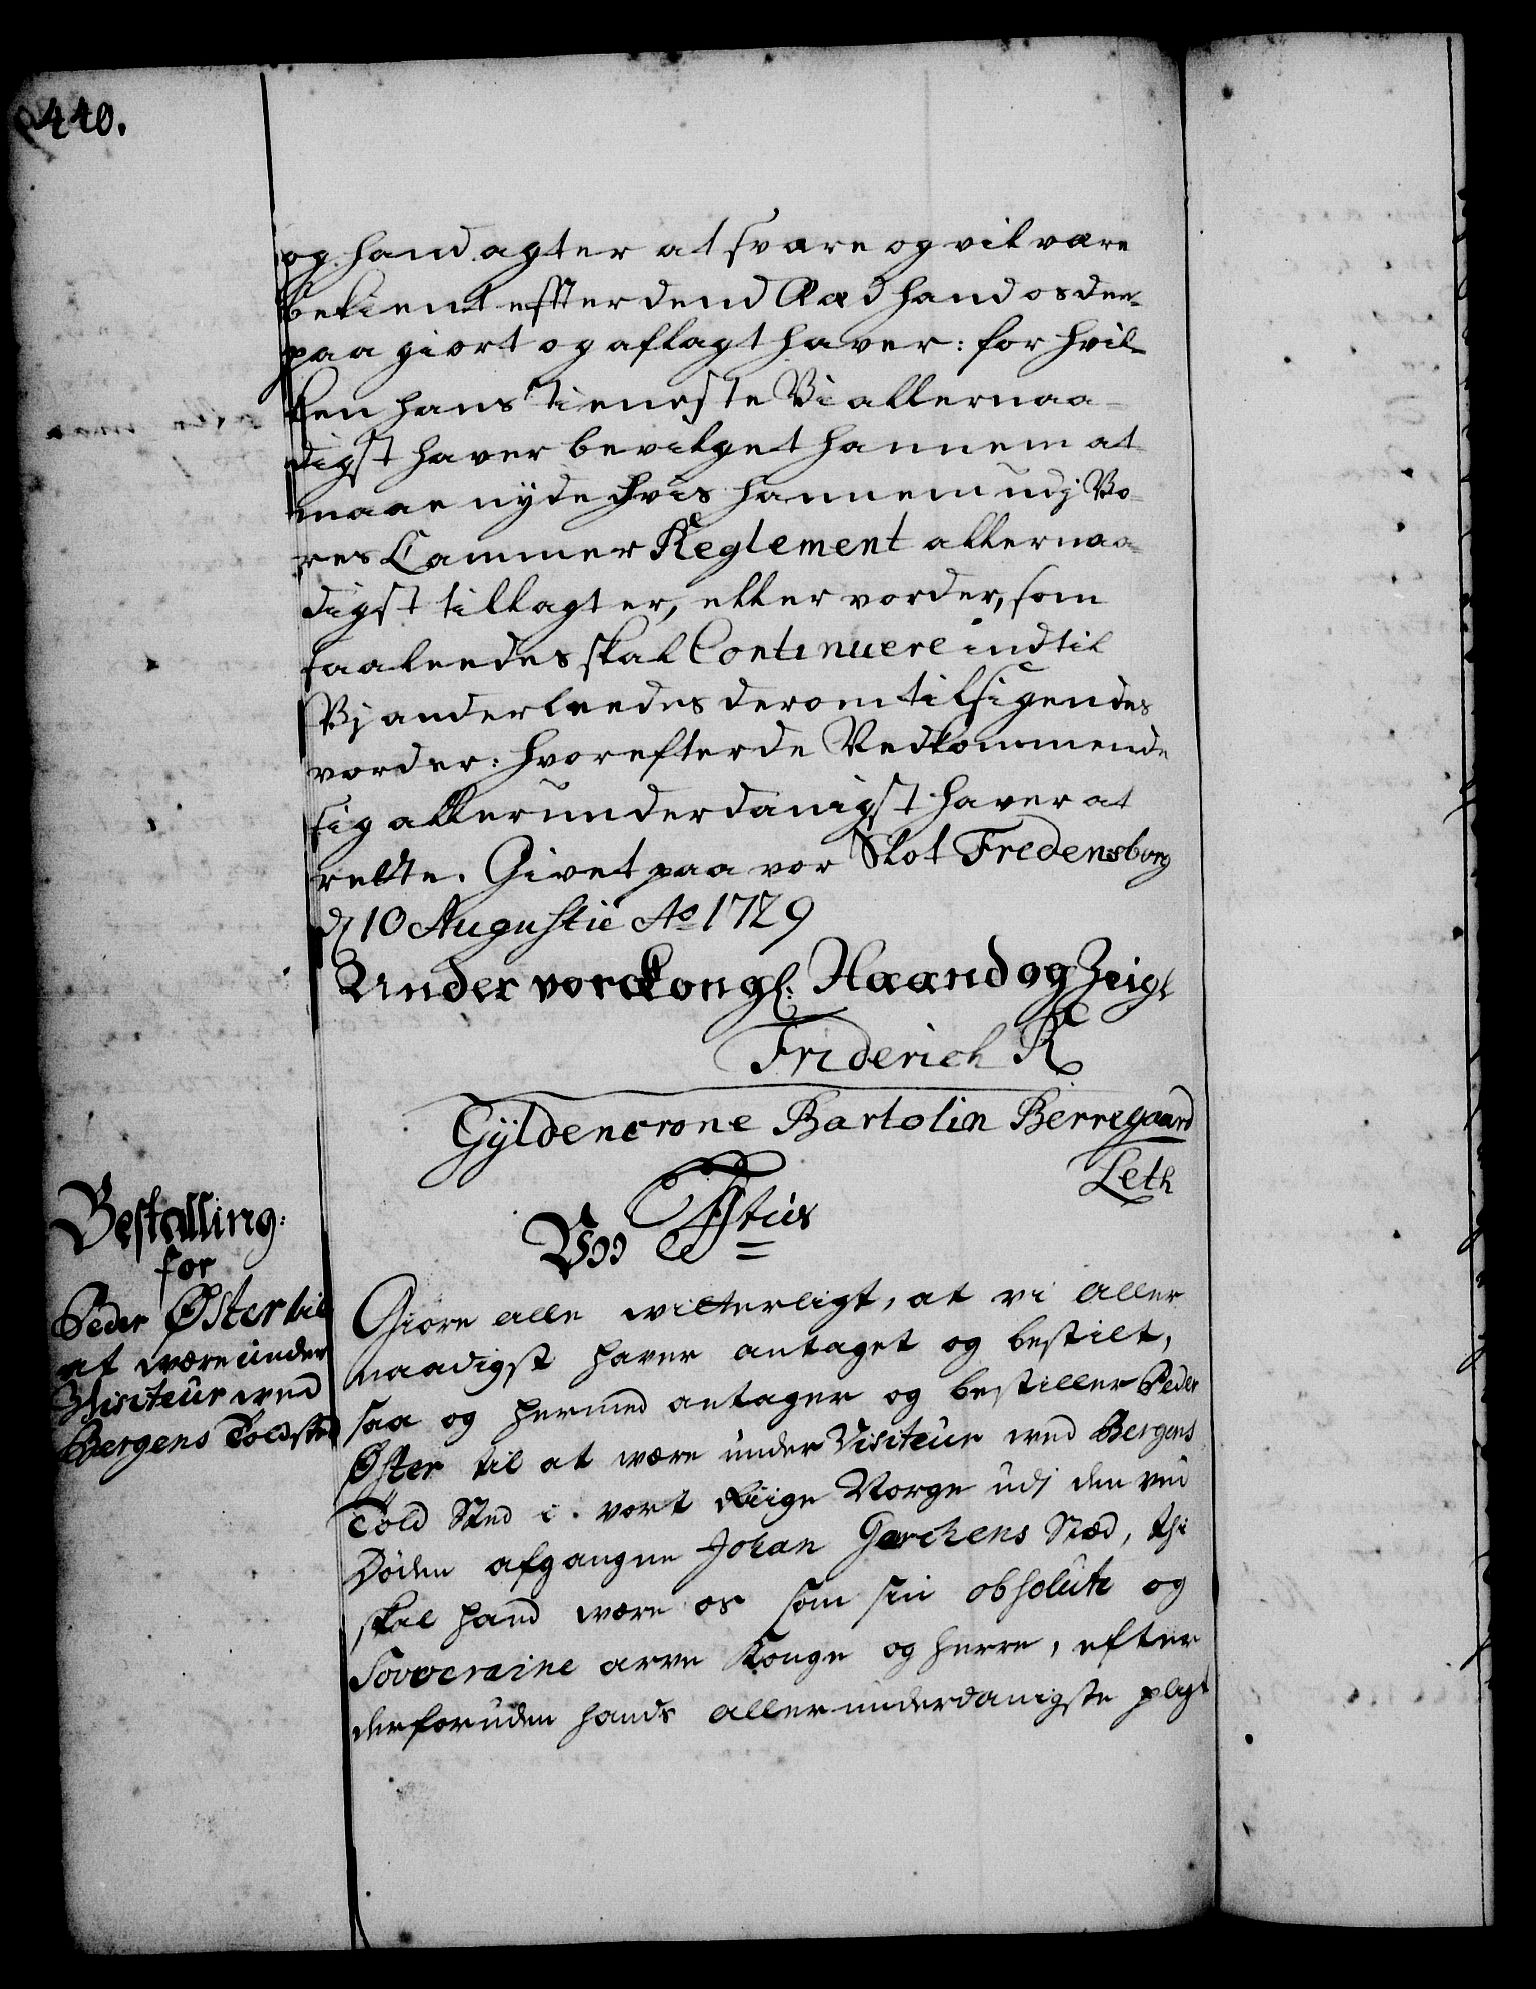 440.
og hand agter at svare og vil være
bekient effter dend Æed hand os der¬
paa giort og aflagt haver: for hvil¬
ken hans tieneste Vi allernaa¬
digst haver bevilget hannem at
maae nyde hvis hannem udj Vo¬
res Cammer Reglement allernaa¬
digst tillagt er, eller vorder, som
saaleedes skal Continuere indtil
Vj anderleedes derom tilsigendes
vorder: hvorefter de Vedkommende
sig allerunderdanigst haver at
rette. Givet paa vor Slot Fredensborg
d 10 Augustii Ao 1729
Under vor Kongl: Haand og Zeigl
Friderich R
Gyldencrone Bartolin Berregaard
Leth
Bestalling:
for
Peder Øster til
at være under
Visiteur ved
Bergens Toldsted
Vii
Giøre alle witterligt, at vi aller
naadigst haver antaget og bestilt,
saa og hermed antager og bestiller Peder
Øster til at være under Visiteur ved Bergens
Told Sted i vort Riige Norge udj den ved
Døden afgangne Johan Gerchens Stæd, thi
skal hand være os som sin absolute og
Souveraine arve Konge og Herre, efter
derforuden hands allerunderdanigste pligt